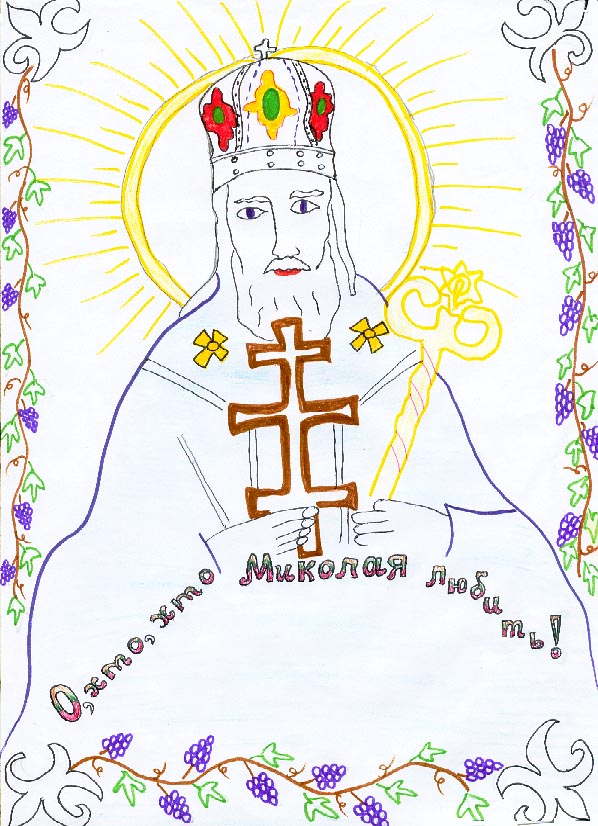 О, хто, хто Миколая любить!